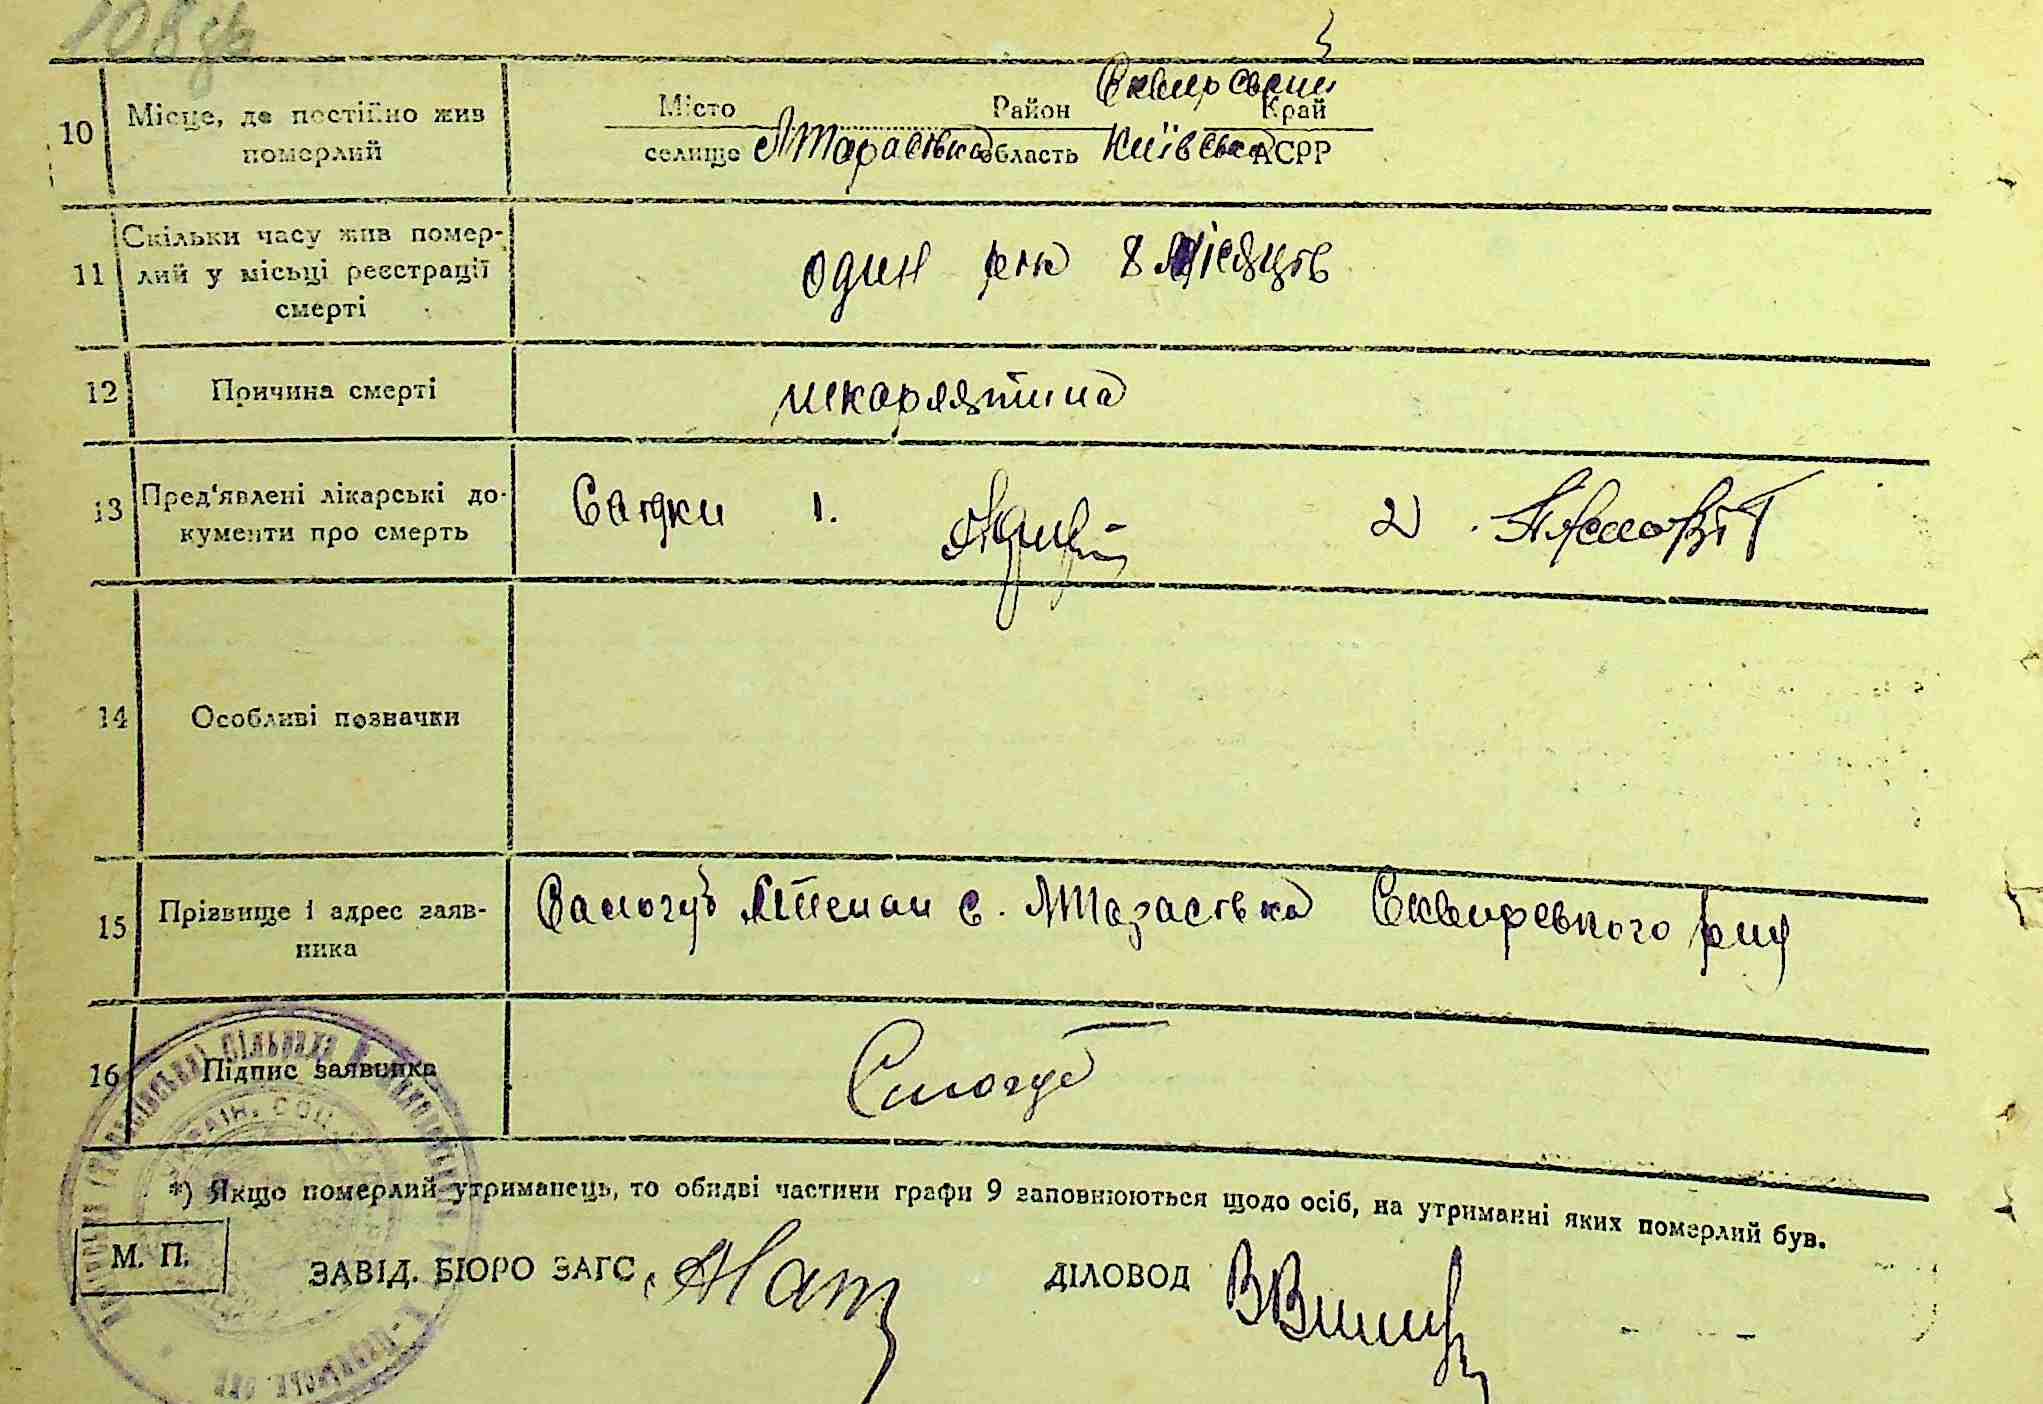 108 зв
10 Місце, де постійно жив померлий
Місто Район Сквирський Край
селище Тарасівка область Київська АСРР
11 Скільки часу жив помер-
лий у місьці реєстрації
смерті
один рік 8 місяців
12 Причина смерті
шкарлятина
13 Пред'явлені лікарські до-
кументи про смерть
Свідки 1. 2)
14 Особливі позначки
15 Прізвище і адрес заяв-
ника
Самогуб Степан с. Тарасівка Сквирського р-ну
16 Підпис заявника
*) Якщо померлий утриманець, то обидві частини графи 9 заповнюються щодо осіб, на утриманні яких померлий був.
М. П.
ЗАВІД. БЮРО ЗАГС ДІЛОВОД